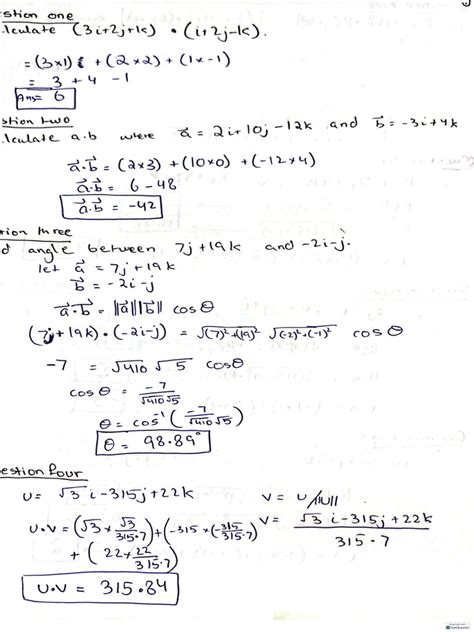 stion one
lculate (3i+2j+k) • (i+2j-k).
= (3×1) + (2×2) + (1×-1)
= 3 + 4 - 1
Ans= 6
stion two
lculate a.b where a⃗ = 2i+10j-12k and b⃗ = -3i+4k
a⃗.b⃗ = (2×3) + (10×0) + (-12×4)
a⃗.b⃗ = 6 - 48
a⃗.b⃗ = -42
tion three
d angle between 7j+19k and -2i-j.
let a⃗ = 7j+19k
b⃗ = -2i-j
a⃗.b⃗ = ||a⃗||b⃗|| cosθ
(7j+19k)•(-2i-j) = √(7)²+(19)² √(-2)²+(-1)² cosθ
-7 = √410 √5 cosθ
cosθ = -7/√410√5
θ = cos⁻¹(-7/√410√5)
θ = 98.89°
estion four
u = √3 i-315j+22k v = u/||u||
u.v = (√3 × √3/315.7) + (-315 × (-315/315.7) v = √3 i-315j+22k/315.7
+ (22×22/315.7)
u.v = 315.84